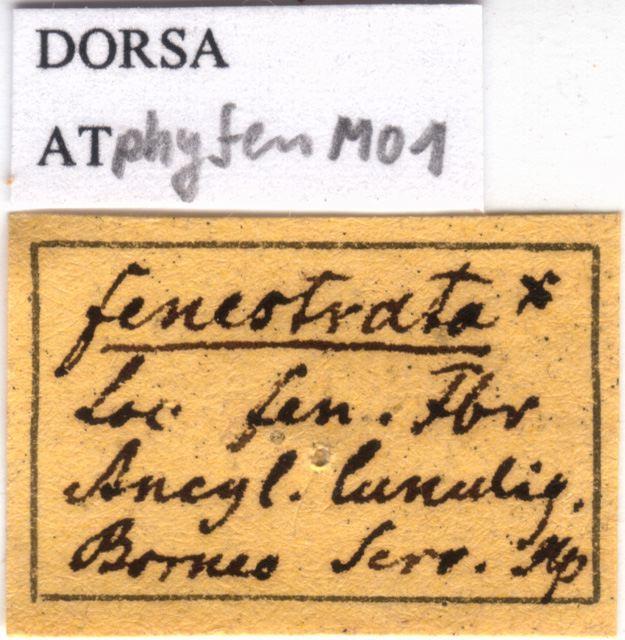 DORSA
ATphyfenM01
fenestrata ×
Loc fen. Fbr
Ancyl. lunulig.
Borneo Serv.